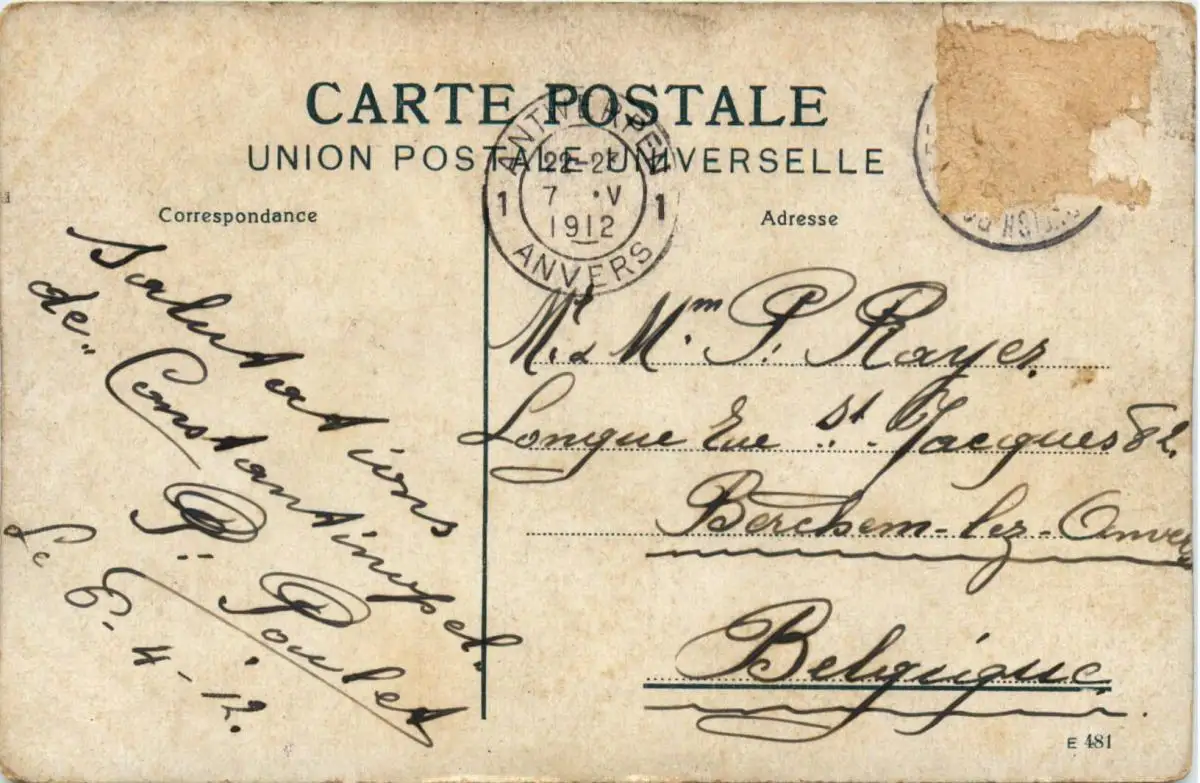 CARTE POSTALE
UNION POSTALE UNIVERSELLE
Correspondance
Adresse
ANTWERPEN
1 22-23 1
7 · V
1912
ANVERS
Salutations
de "Constantinopel"
P. Poulet
Le 6-4-12.
Mr & Mm P. Rayer.
Longue Rue St. Jacques 82.
Berchem-lez-Anvers
Belgique.
E 481